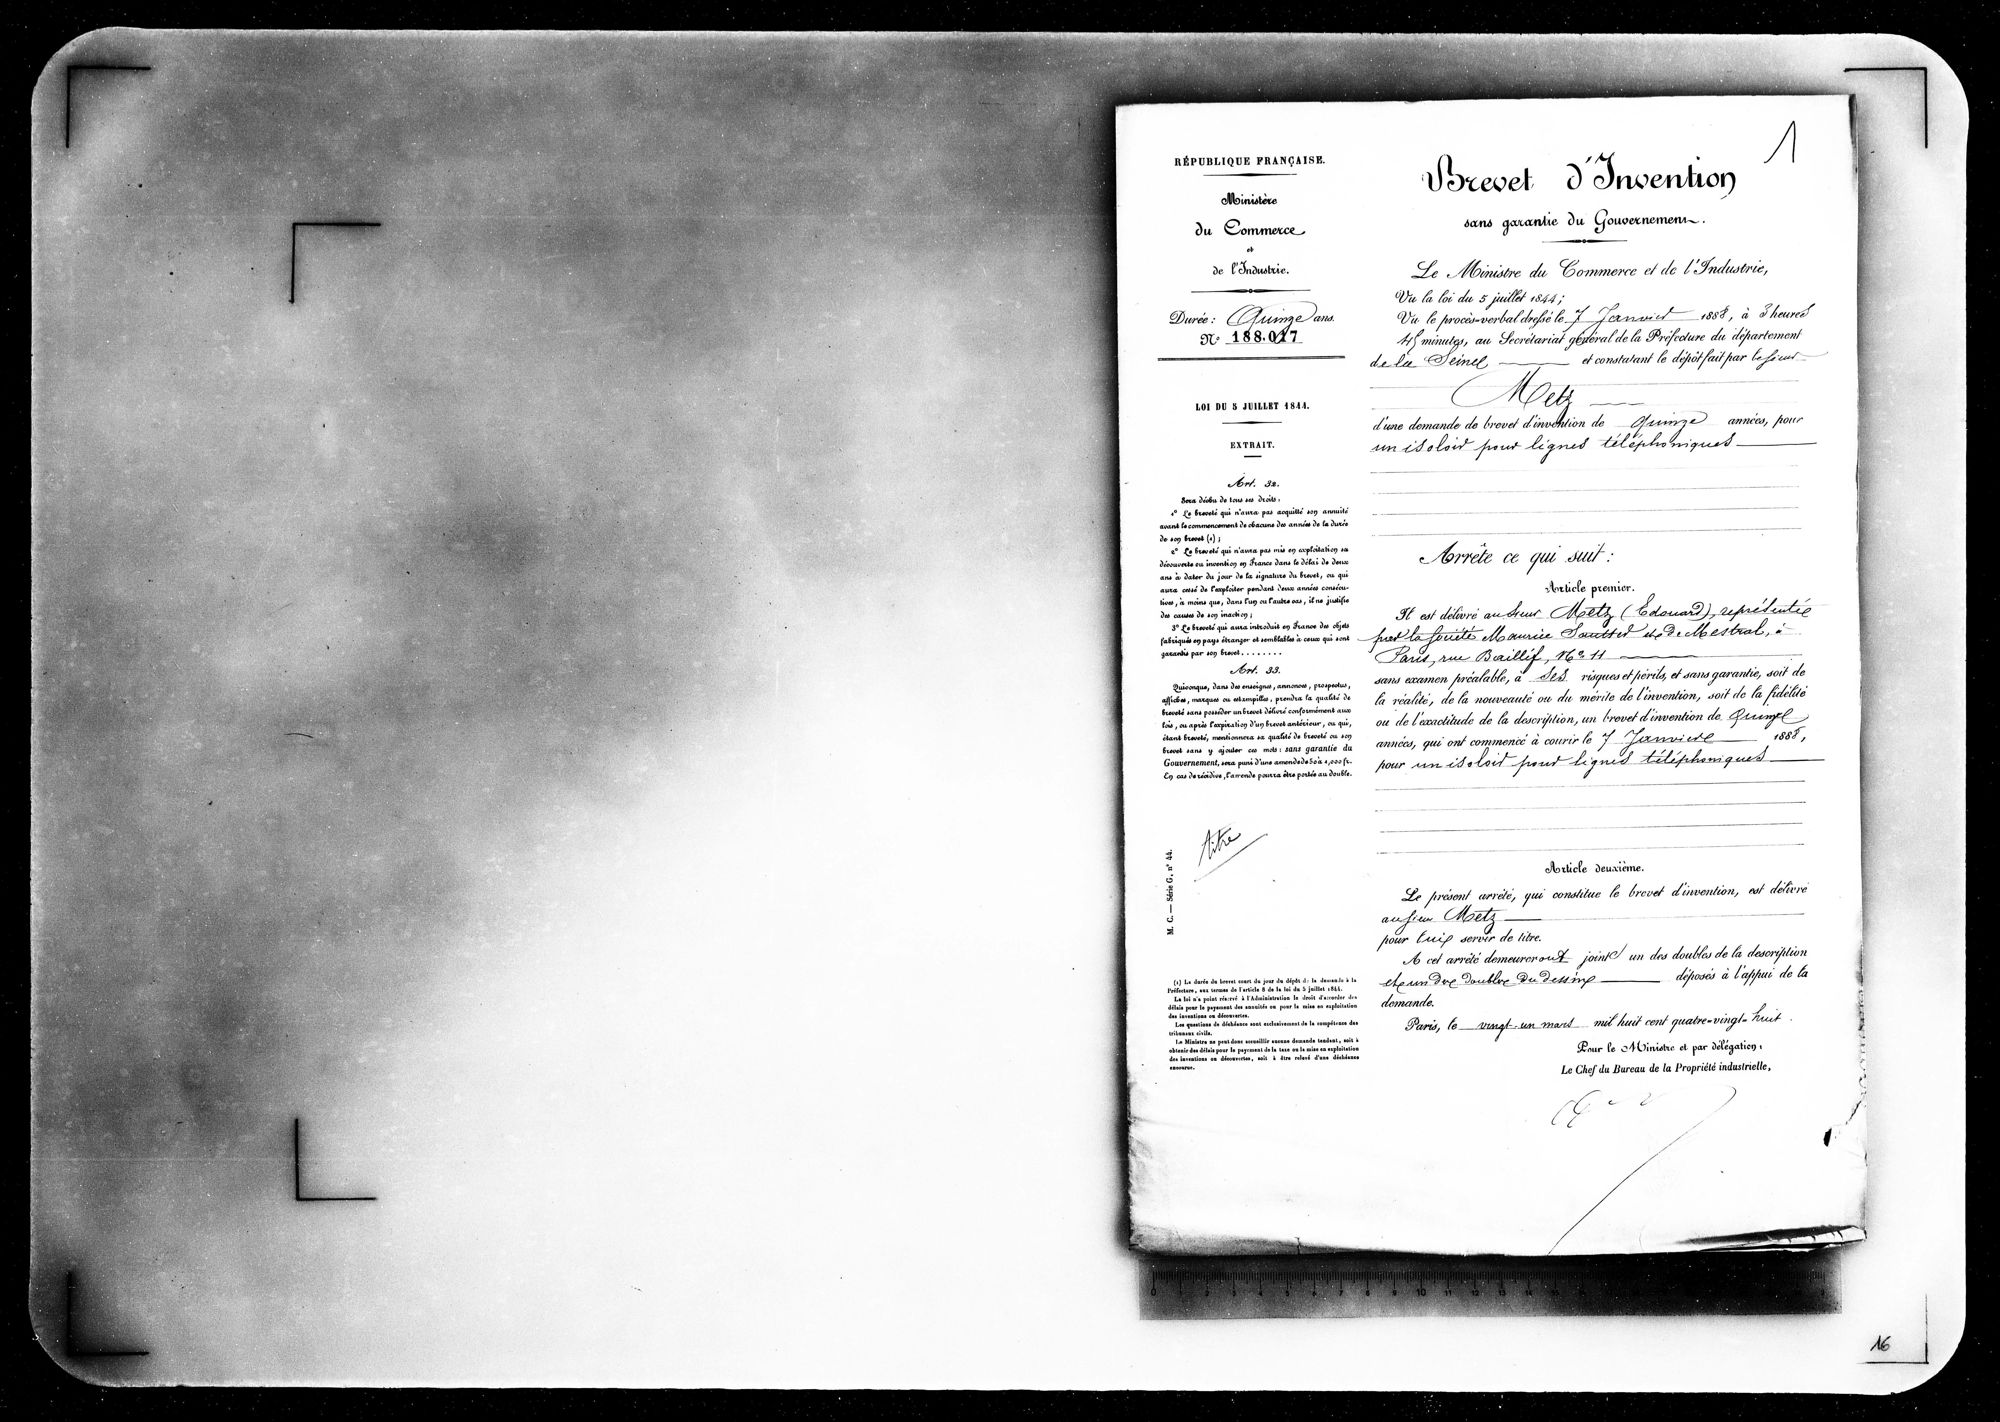 RÉPUBLIQUE FRANÇAISE.
Ministère
du Commerce
et
de l'Industrie.
Durée : Quinze ans.
N° 188.017
LOI DU 5 JUILLET 1844.
EXTRAIT.
Art. 32.
Sera déchu de tous ses droits :
1° Le breveté qui n'aura pas acquitté son annuité
avant le commencement de chacune des années de la durée
de son brevet (1) ;
2° Le breveté qui n'aura pas mis en exploitation sa
découverte ou invention en France dans le délai de deux
ans à dater du jour de la signature du brevet, ou qui
aura cessé de l'exploiter pendant deux années consécu-
tives, à moins que, dans l'un ou l'autre cas, il ne justifie
des causes de son inaction ;
3° Le breveté qui aura introduit en France des objets
fabriqués en pays étranger et semblables à ceux qui sont
garantis par son brevet........
Art. 33.
Quiconque, dans des enseignes, annonces, prospectus,
affiches, marques ou estampilles, prendra la qualité de
breveté sans posséder un brevet délivré conformément aux
lois, ou après l'expiration d'un brevet antérieur, ou qui,
étant breveté, mentionnera sa qualité de breveté ou son
brevet sans y ajouter ces mots : sans garantie du
Gouvernement, sera puni d'une amende de 50 à 1,000 fr.
En cas de récidive, l'amende pourra être portée au double.
titre
M. C. — Série G, n° 44.
(1) La durée du brevet court du jour du dépôt de la demande à la
Préfecture, aux termes de l'article 8 de la loi du 5 juillet 1844.
La loi n'a point réservé à l'Administration le droit d'accorder des
délais pour le payement des annuités ou pour la mise en exploitation
des inventions ou découvertes.
Les questions de déchéance sont exclusivement de la compétence des
tribunaux civils.
Le Ministre ne peut donc accueillir aucune demande tendant, soit à
obtenir des délais pour le payement de la taxe ou la mise en exploitation
des inventions ou découvertes, soit à être relevé d'une déchéance
encourue.
1
Brevet d'Invention
sans garantie du Gouvernement.
Le Ministre du Commerce et de l'Industrie,
Vu la loi du 5 juillet 1844 ;
Vu le procès-verbal dressé le 7 Janvier 1888, à 3 heures
45 minutes, au Secrétariat général de la Préfecture du département
de la Seine et constatant le dépôt fait par le sieur
Metz
d'une demande de brevet d'invention de quinze années, pour
un isoloir pour lignes téléphoniques
Arrête ce qui suit :
Article premier.
Il est délivré au Sieur Metz (Edouard), représenté
par la Société Maurice Soutter et de Mestral, à
Paris, rue Baillif, N° 11
sans examen préalable, à ses risques et périls, et sans garantie, soit de
la réalité, de la nouveauté ou du mérite de l'invention, soit de la fidélité
ou de l'exactitude de la description, un brevet d'invention de quinze
années, qui ont commencé à courir le 7 Janvier 1888,
pour un isoloir pour lignes téléphoniques
Article deuxième.
Le présent arrêté, qui constitue le brevet d'invention, est délivré
au Sieur Metz
pour lui servir de titre.
A cet arrêté demeureront joints un des doubles de la description
et un des doubles du dessin déposés à l'appui de la
demande.
Paris, le vingt-un mars mil huit cent quatre-vingt-huit.
Pour le Ministre et par délégation :
Le Chef du Bureau de la Propriété industrielle,
16